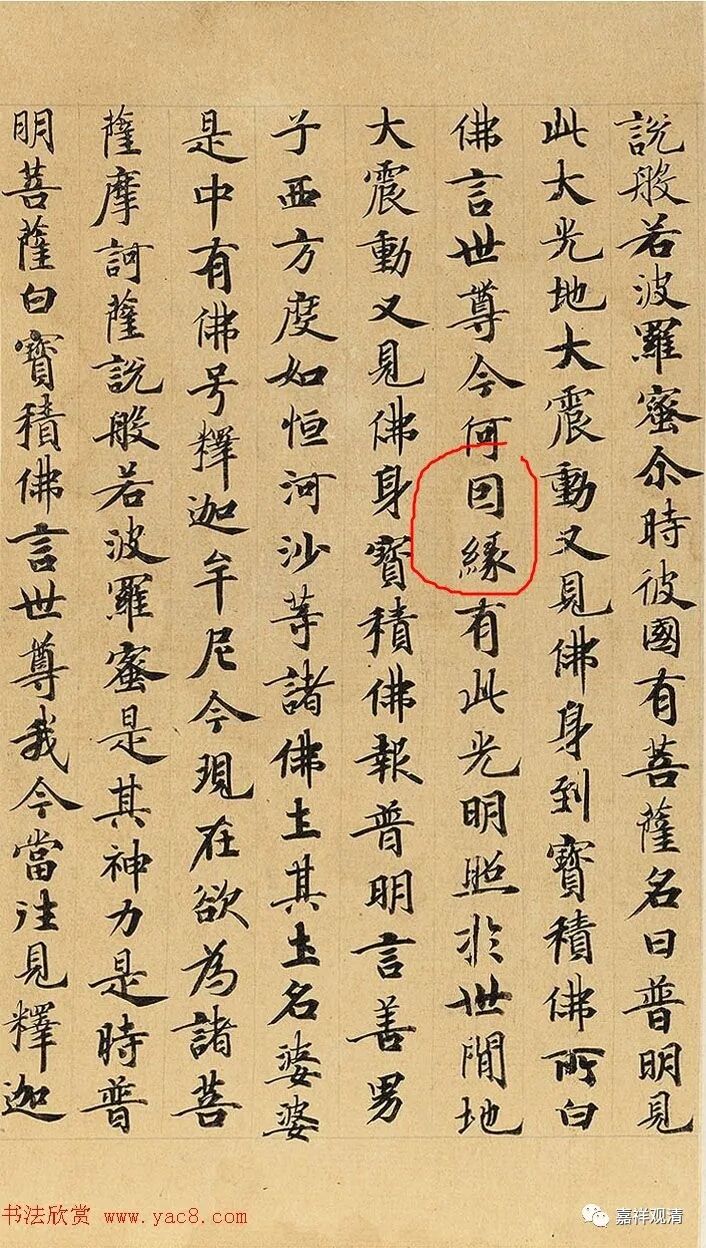 說般若波羅蜜尒時彼國有菩薩名曰普明見
此大光地大震動又見佛身到寶積佛所白
佛言世尊今何因緣有此光明照於世間地
大震動又見佛身寶積佛報普明言善男
子西方度如恒河沙等諸佛土其土名娑婆
是中有佛号釋迦牟尼今現在欲為諸菩
薩摩訶薩說般若波羅蜜是其神力是時普
明菩薩白寶積佛言世尊我今當往見釋迦
书法欣赏 www.yac8.com
嘉祥观清